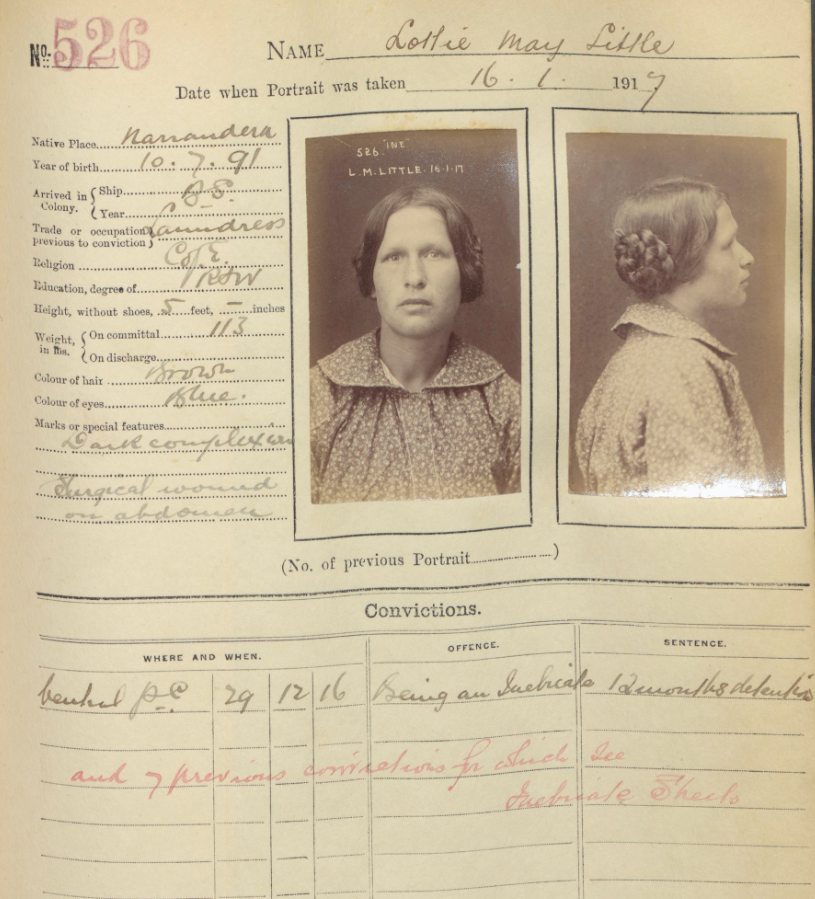 No. 526
NAME Lottie May Little
Date when Portrait was taken 16. 1. 1917
526 "INE"
L.M.LITTLE.16-1-17
Native Place Narrandera
Year of birth 10. 7. 91
Arrived in Colony. { Ship
Year
Trade or occupation previous to conviction } Laundress
Religion C of E.
Education, degree of R & W
Height, without shoes, 5 feet, – inches
Weight, in lbs. { On committal 113
On discharge
Colour of hair Brown
Colour of eyes Blue.
Marks or special features
Dark complexion
Surgical wound
on abdomen
(No. of previous Portrait )
Convictions.
WHERE AND WHEN. OFFENCE. SENTENCE.
Central P.C 29 12 16 Being an Inebriate 12 months detention
and 7 previous convictions for which see
Inebriate Sheets